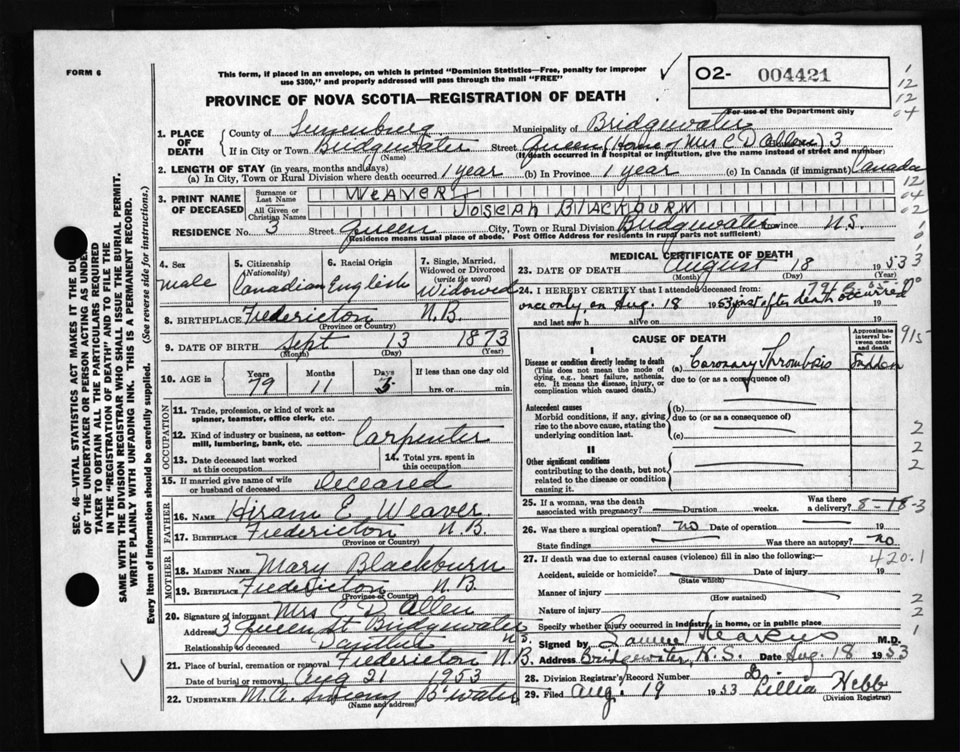 FORM 6
This form, if placed in an envelope, on which is printed "Dominion Statistics—Free, penalty for improper
use $300," and properly addressed will pass through the mail "FREE"
O2- 004421
For use of the Department only
PROVINCE OF NOVA SCOTIA—REGISTRATION OF DEATH
1. PLACE OF DEATH
County of Lunenburg Municipality of Bridgewater
If in City or Town Bridgewater Street Queen (Home of Mrs C D Allen) 3
(Name) (If death occurred in a hospital or institution, give the name instead of street and number)
2. LENGTH OF STAY (in years, months and days)
(a) In City, Town or Rural Division where death occurred 1 year (b) In Province 1 year (c) In Canada (if immigrant) Canada
3. PRINT NAME OF DECEASED
Surname or Last Name WEAVER
All Given or Christian Names JOSEPH BLACKBURN
RESIDENCE No. 3 Street Queen City, Town or Rural Division Bridgewater Province N.S.
(Residence means usual place of abode. Post Office Address for residents in rural parts not sufficient)
4. Sex male
5. Citizenship (Nationality) Canadian
6. Racial Origin English
7. Single, Married, Widowed or Divorced (write the word) Widowed
8. BIRTHPLACE Fredericton N.B.
(Province or Country)
9. DATE OF BIRTH Sept 13 1873
(Month) (Day) (Year)
10. AGE in Years 79 Months 11 Days 5 If less than one day old
hrs. or min.
OCCUPATION
11. Trade, profession, or kind of work as spinner, teamster, office clerk, etc.
12. Kind of industry or business, as cotton-mill, lumbering, bank, etc. Carpenter
13. Date deceased last worked at this occupation
14. Total yrs. spent in this occupation
15. If married give name of wife or husband of deceased Deceased
FATHER
16. NAME Hiram E Weaver
17. BIRTHPLACE Fredericton N.B.
(Province or Country)
MOTHER
18. MAIDEN NAME Mary Blackburn
19. BIRTHPLACE Fredericton N.B.
(Province or Country)
20. Signature of informant Mrs C D Allen
Address 3 Queen St Bridgewater N.S.
Relationship to deceased Daughter
21. Place of burial, cremation or removal Fredericton N.B.
Date of burial or removal Aug 21 1953
22. UNDERTAKER M.A. B'water
(Name and address)
MEDICAL CERTIFICATE OF DEATH
23. DATE OF DEATH August 18 1953
(Day) (Year)
24. I HEREBY CERTIFY that I attended deceased from:
once only, on Aug. 18 1953 just after death occurred
and last saw h alive on
CAUSE OF DEATH
Approximate interval between onset and death
I
Disease or condition directly leading to death
(This does not mean the mode of dying, e.g., heart failure, asthenia, etc. It means the disease, injury, or complication which caused death.)
(a) Coronary Thrombosis Sudden
due to (or as a consequence of)
Antecedent causes
Morbid conditions, if any, giving rise to the above cause, stating the underlying condition last.
(b)
due to (or as a consequence of)
(c)
II
Other significant conditions
contributing to the death, but not related to the disease or condition causing it.
25. If a woman, was the death associated with pregnancy? Duration weeks. Was there a delivery? 8-18-3
26. Was there a surgical operation? no Date of operation 19
State findings Was there an autopsy? no
27. If death was due to external causes (violence) fill in also the following:— 420.1
Accident, suicide or homicide? Date of injury 19
(State which)
Manner of injury
(How sustained)
Nature of injury
Specify whether injury occurred in industry, in home, or in public place
Signed by M.D.
Address Bridgewater, N.S. Date Aug. 18 1953
28. Division Registrar's Record Number
29. Filed Aug. 19 1953 Lillia Hebb
(Division Registrar)
SEC. 46—VITAL STATISTICS ACT MAKES IT THE DUTY
OF THE UNDERTAKER OR PERSON ACTING AS UNDERTAKER
TO OBTAIN ALL THE PARTICULARS REQUIRED
IN THE "REGISTRATION OF DEATH" AND TO FILE THE
SAME WITH THE DIVISION REGISTRAR WHO SHALL ISSUE THE BURIAL PERMIT.
WRITE PLAINLY WITH UNFADING INK. THIS IS A PERMANENT RECORD.
Every item of Information should be carefully supplied. (See reverse side for instructions.)